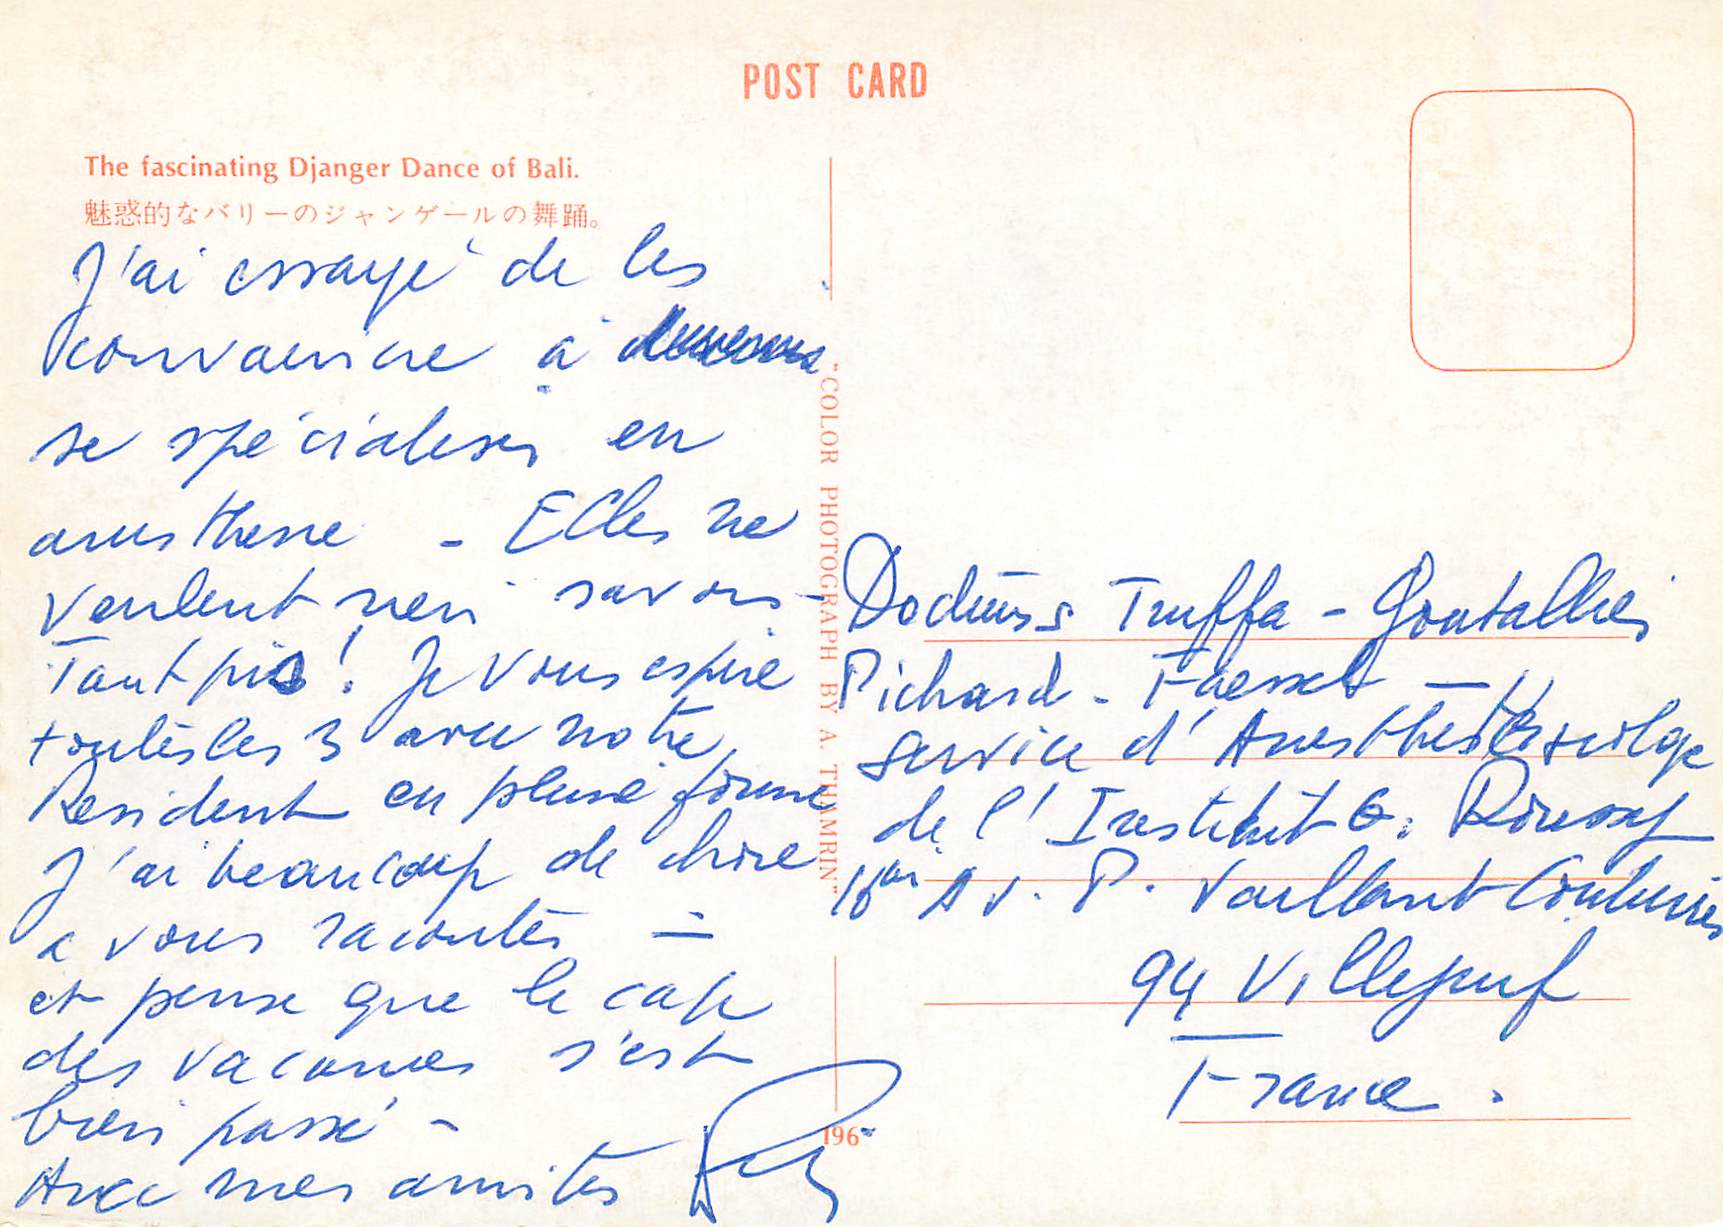 POST CARD
The fascinating Djanger Dance of Bali.
魅惑的なバリーのジャンゲールの舞踊。
J'ai essayé de les
convaincre à
se spécialiser en
anesthesie - Elles ne
veulent rien savoir -
Tant pis! Je vous espère
toutes les 3 avec notre
Resident en pleine forme
J'ai beaucoup de chose
a vous raconter -
et pense que le cap
des vacances s'est
bien passé -
Avec mes amitiés
"COLOR PHOTOGRAPH BY A. THAMRIN"
196
Docteurs Truffa - Goutallier
Pichard - Faessel -
Service d'Anesthesiologie
de l'Institut G. Roussy
16bis Av. P. Vaillant Couturier
94 Villejuif
France.